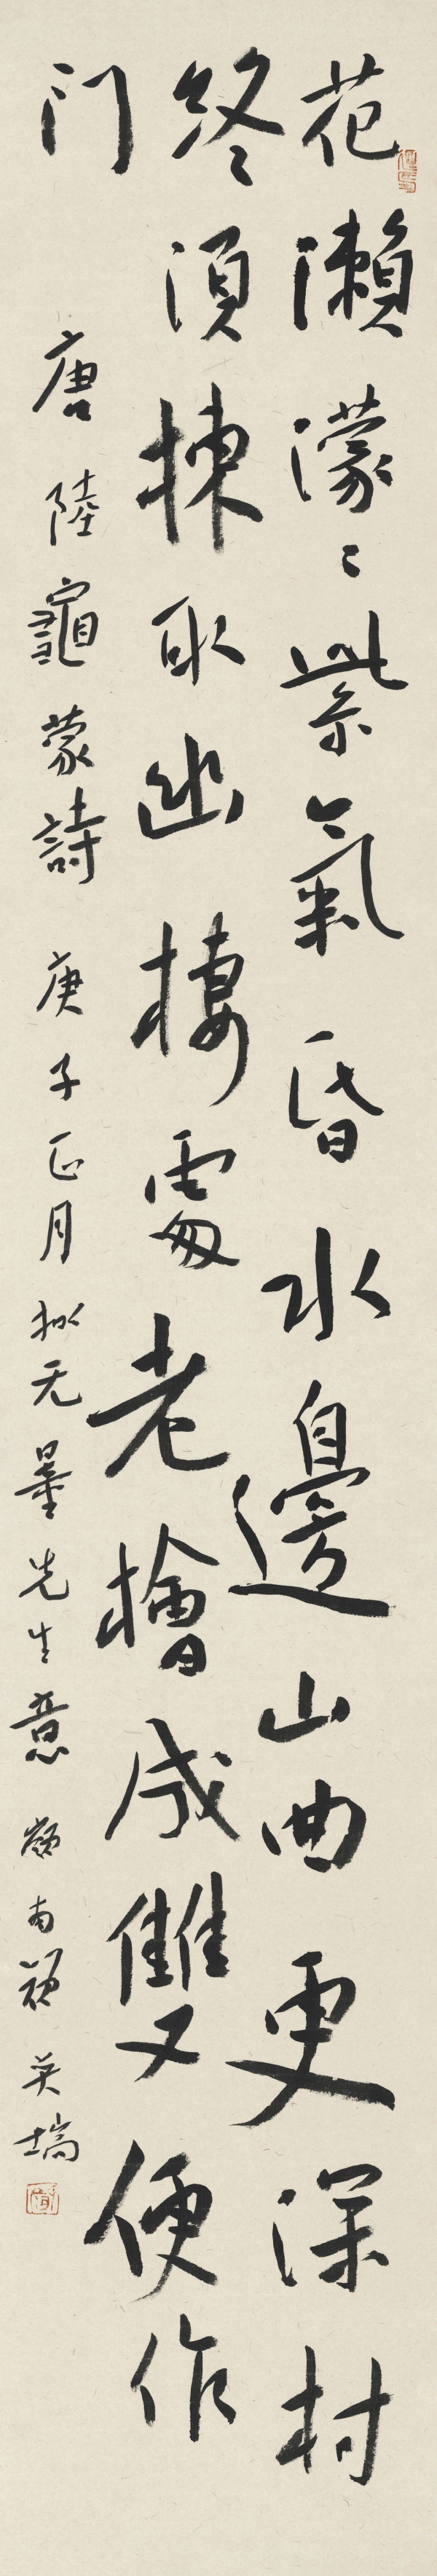 花濑濛〻紫氣昏水邊山曲更深村
終須揀取幽棲處老檜成雙便作
门
唐陸龜蒙詩 庚子正月拟无量先生意 嶺南 英瑞